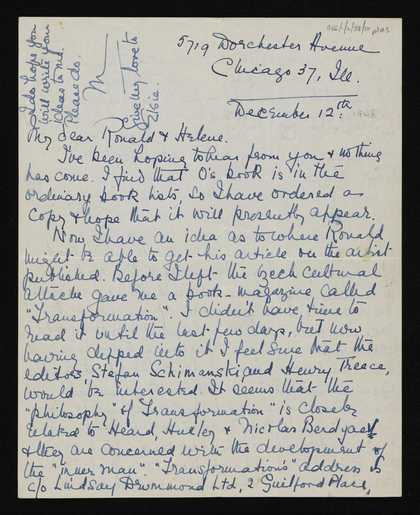 5719 Dorchester Avenue
Chicago 37, Ill.
December 12th
1948
I do hope you
will write your
ideas to me.
Please do.
M
Give my love to
Elsie.
My dear Ronald & Helene.
I've been hoping to hear from you & nothing
has come. I find that O's book is in the
ordinary book lists, so I have ordered a
copy & hope that it will presently appear.
Now I have an idea as to where Ronald
might be able to get his article on the artist
published. Before I left the Czech Cultural
Attache gave me a book-magazine called
"Transformation". I didn't have time to
read it until the last few days, but now
having dipped into it I feel sure that the
editors Stefan Schimanski, and Henry Treece,
would be interested. It seems that the
"philosophy" of "Transformation" is closely
related to Heard, Huxley & Nicolas Berdyaef
& they are concerned with the development of
the "inner man". "Transformation's" address is
c/o Lindsay Drummond Ltd, 2 Guilford Place,